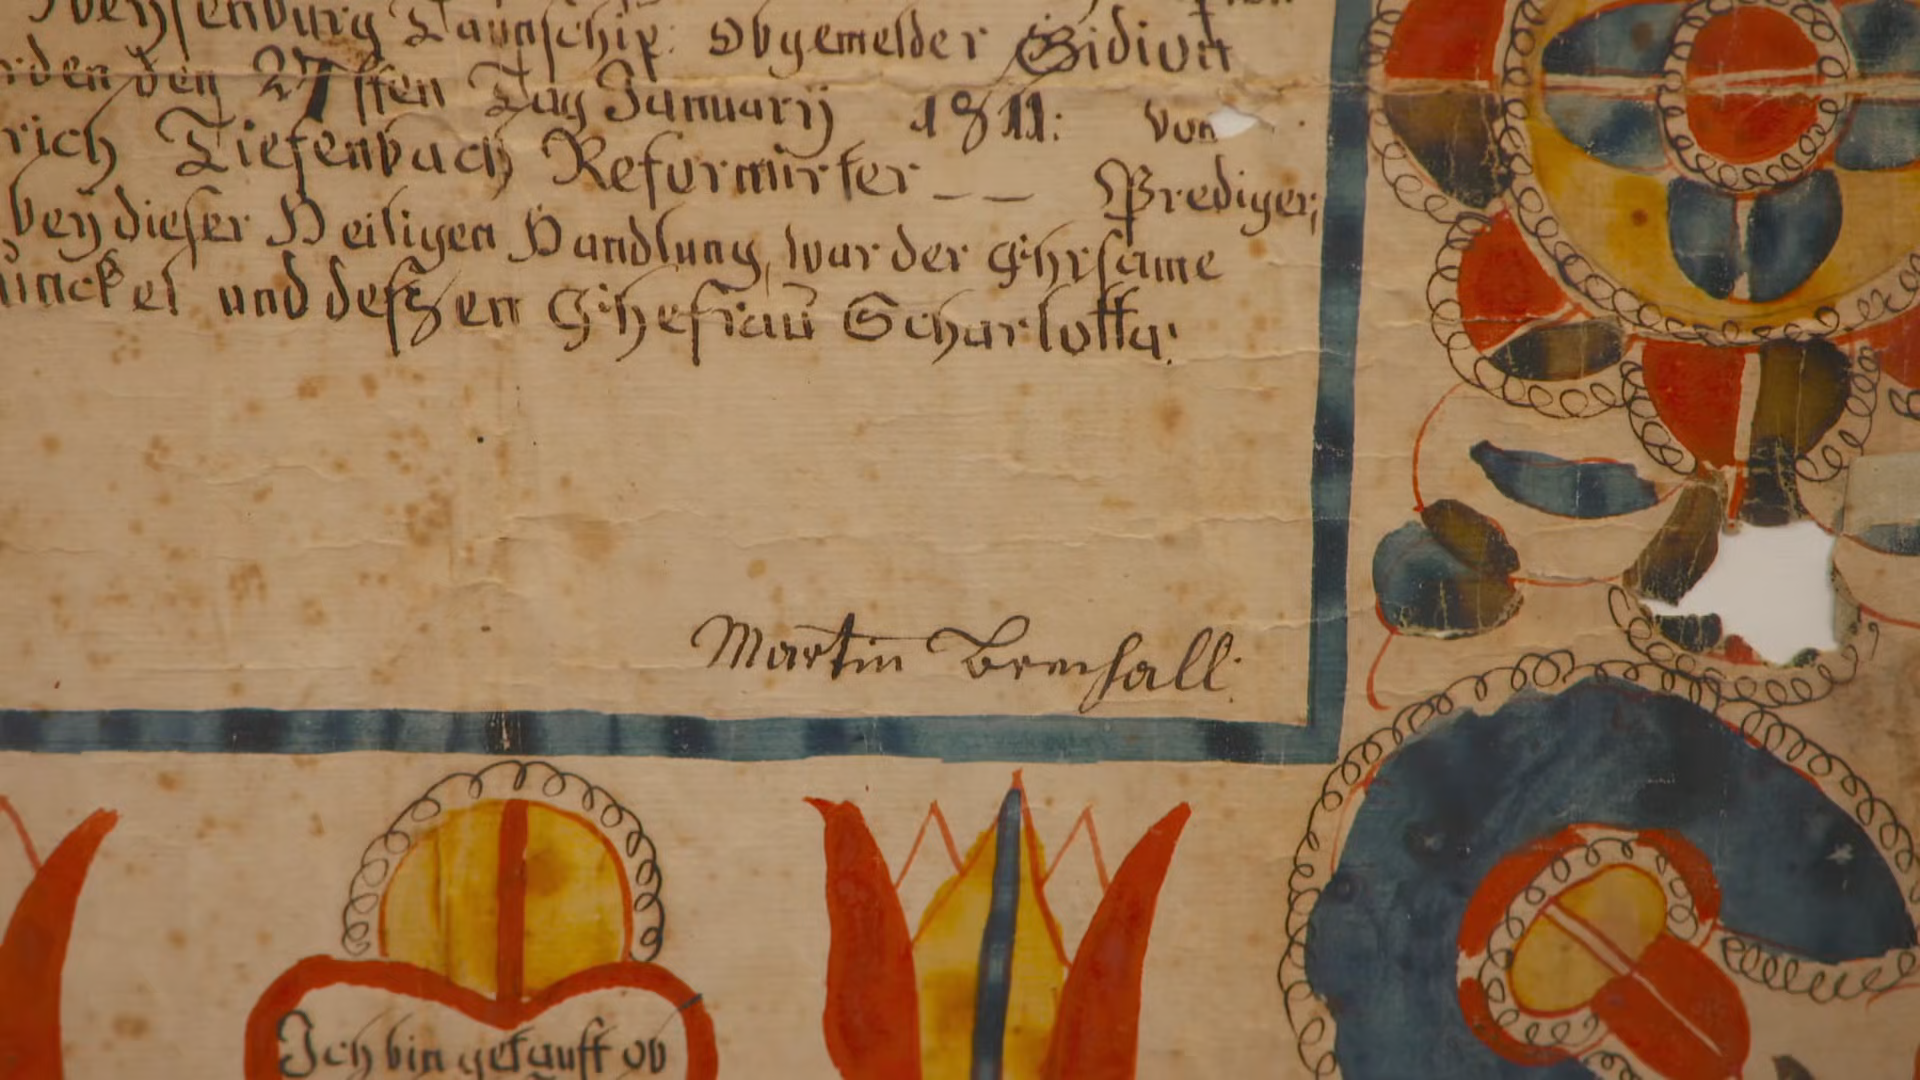 Taunschip: Obgemelder Gidion
den 27ſten Tag Januarÿ 1811: Von
rich Tiefenbach Reformirter _ _ Prediger;
beÿ dieſer Heiligen Handlung, war der Ehrſame
und deſzen Ehefrau Scharlotta:
Martin Brechall.
Ich bin getauft ob